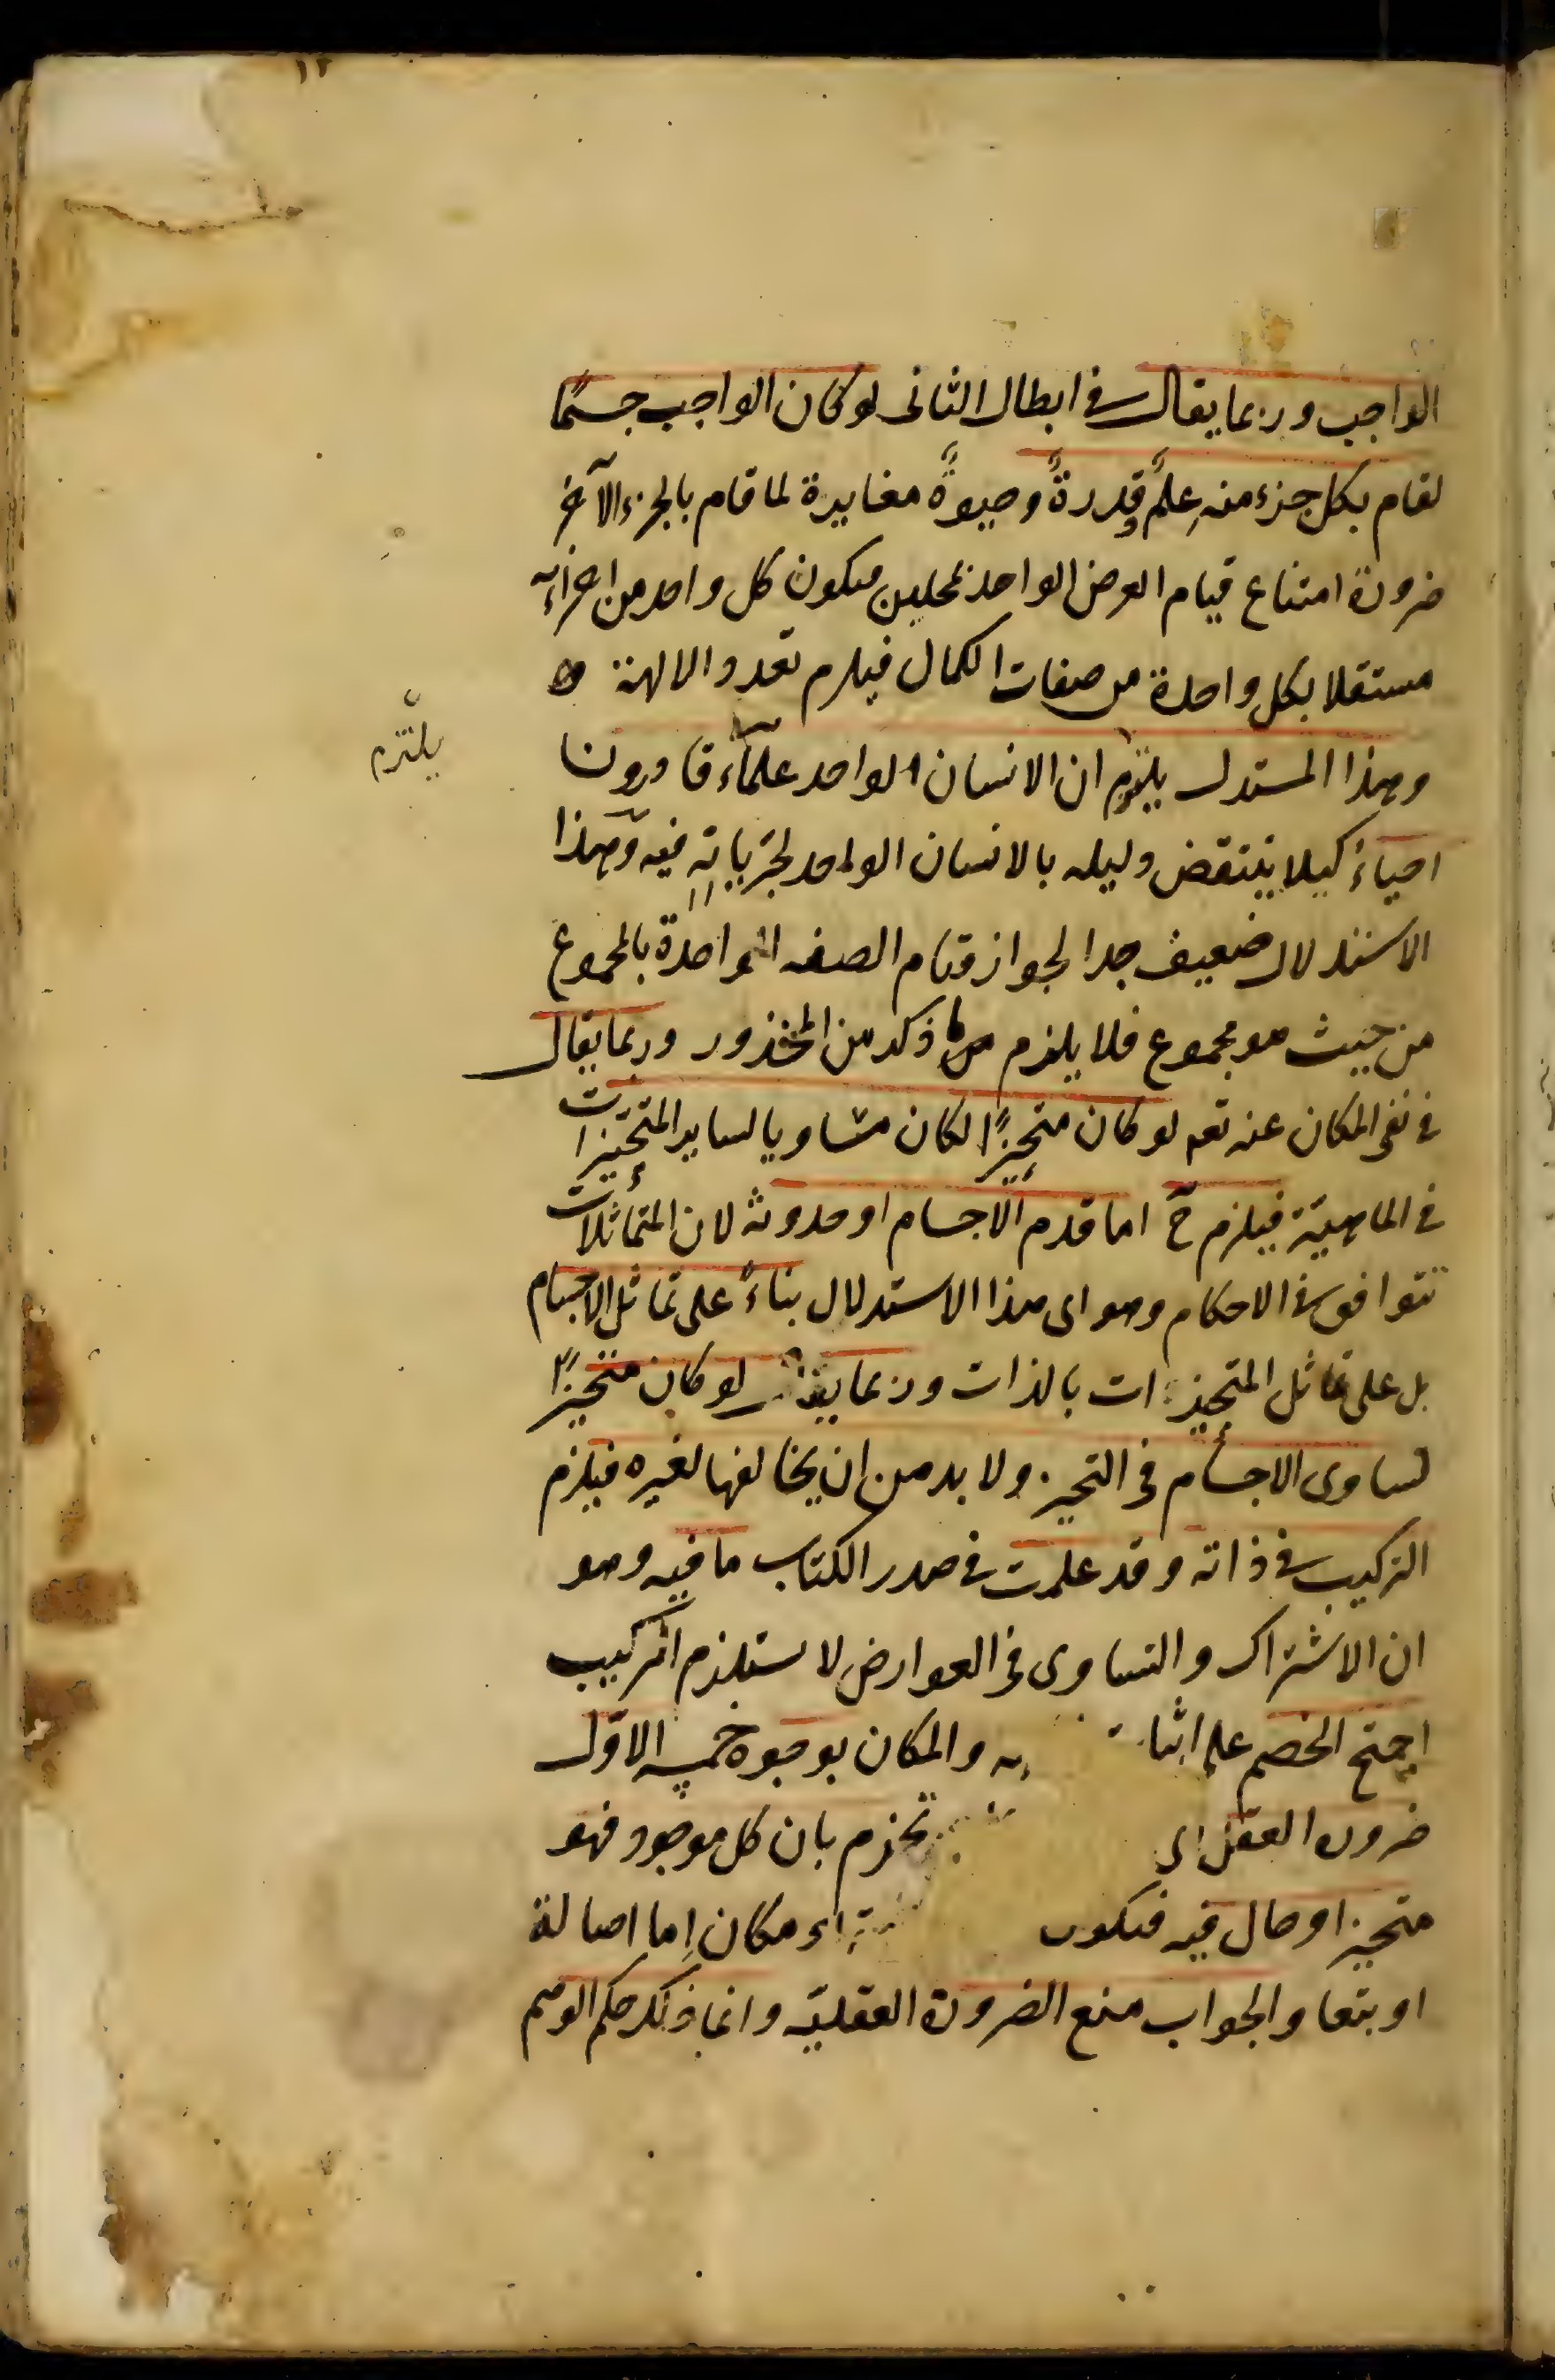 ١٢
الواجب وربما يقال في ابطال الثانى لو كان الواجب جسمًا
لقام بكل جزء منه علمٌ وقدرةٌ وحيوةٌ مغايرة لما قام بالجزء الآخر
ضرورة امتناع قيام العرض الواحد بمحلين فيكون كل واحد من اجزائه
مستقلا بكل واحدة من صفات الكمال فيلزم تعدد الالهة
وهذا المستدل يلتزم ان الانسان الواحد علماء قادرون
يلتزم
احياءٌ كيلا ينتقض دليله بالانسان الواحد لجريانه فيه وهذا
الاستدلال ضعيف جدا لجواز قيام الصفه الواحدة بالمجموع
من حيث هو مجموع فلا يلزم ما ذكر من المحذور وربما يقال
في نفى المكان عنه تعه لو كان متحيزًا لكان مساويا لساير المتحيزات
في الماهيّة فيلزم ح اما قدم الاجسام او حدوثه لان المتماثلات
تتوافق في الاحكام وهو اى هذا الاستدلال بناءً على تماثل الاجسام
بل على تماثل المتحيزات بالذات وربما يقال لو كان متحيزًا
لساوى الاجسام فى التحيز ولا بد من ان يخالفها لغيره فيلزم
التركيب في ذاته وقد علمت في صدر الكتاب ما فيه وهو
ان الاشتراك والتساوى فى العوارض لا يستلزم التركيب
احتج الخصم على اثبا والمكان بوجوه خمسه الاوّل
ضرورة العقل اى تجزم بان كل موجود فهو
متحيز او حال فيه فيكون مكان إما اصالة
او تبعا والجواب منع الضرورة العقليّه وانما ذلك حكم الوهم